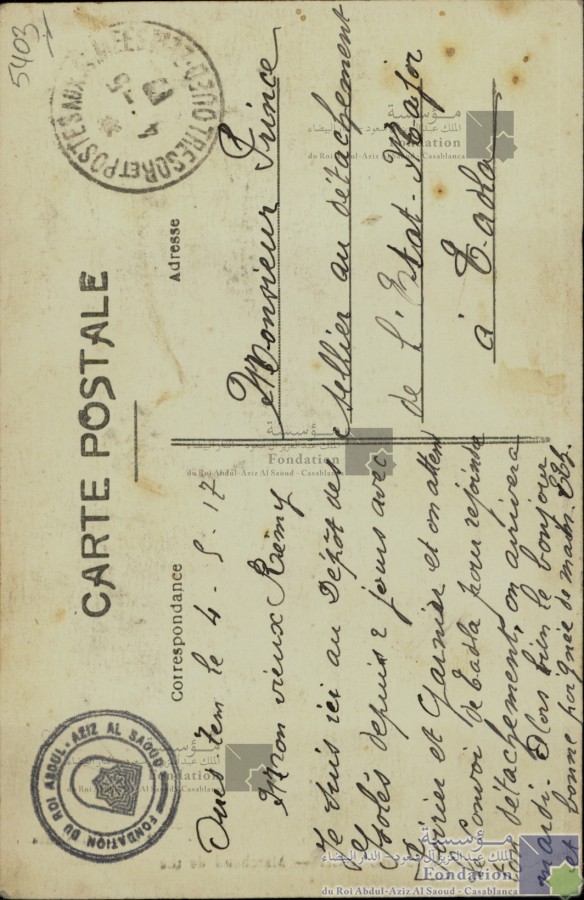 5403
TRESOR ET POSTES AUX ARMEES OUED-ZEM
4 - 5
CARTE POSTALE
Correspondance
Adresse
Oued-Zem le 4-5-17
Mon vieux Remy
Je suis ici au Dépôt des
Isolés depuis 2 jours avec
et Garnier et on attend
le convoi de Tadla pour rejoindre
son détachement, on arrivera
mardi. Alors bien le bonjour
et bonne poignée de mains.
Monsieur Prince
sellier au détachement
de l'Etat-Major
à Tadla
FONDATION DU ROI ABDUL-AZIZ AL SAOUD
مؤسسة
الملك عبد العزيز آل سعود - الدار البيضاء
Fondation
du Roi Abdul-Aziz Al Saoud - Casablanca